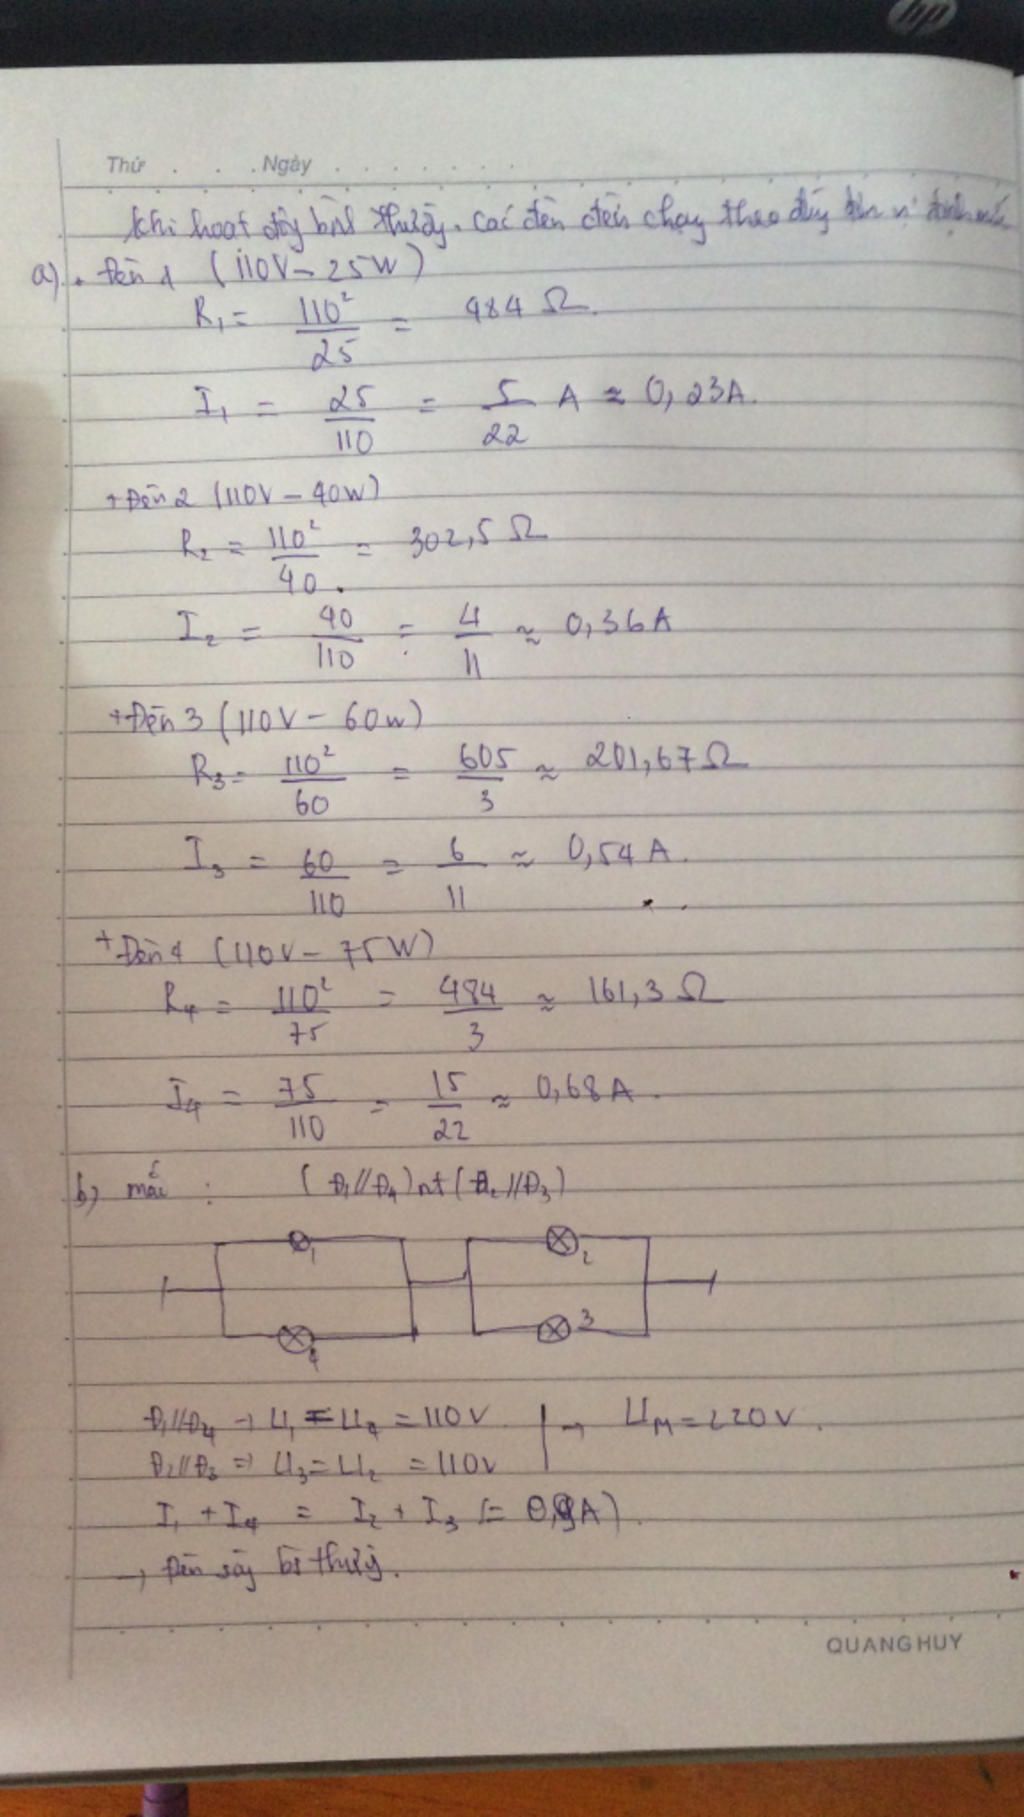 hp
Thứ . . . . Ngày . . . . . . . .
Khi hoạt động bình thường. Các đèn đều chạy theo đúng
a) • Đèn 1 (110V - 25W)
R₁ = 110²/25 = 484 Ω.
I₁ = 25/110 = 5/22 A ≈ 0,23A.
+ Đèn 2 (110V - 40W)
R₂ = 110²/40 = 302,5 Ω
I₂ = 40/110 = 4/11 ≈ 0,36A
+ Đèn 3 (110V - 60W)
R₃ = 110²/60 = 605/3 ≈ 201,67 Ω
I₃ = 60/110 = 6/11 ≈ 0,54 A.
+ Đèn 4 (110V - 75W)
R₄ = 110²/75 = 484/3 ≈ 161,3 Ω
I₄ = 75/110 = 15/22 ≈ 0,68A.
b) mắc : (Đ₁//Đ₄) nt (Đ₂//Đ₃)
1 2
4 3
Đ₁//Đ₄ → U₁ = U₄ = 110V → U_M = 220V.
Đ₂//Đ₃ => U₃ = U₂ = 110V
I₁ + I₄ = I₂ + I₃ (= 0,9A).
→ Đèn sáng bt thường.
QUANG HUY